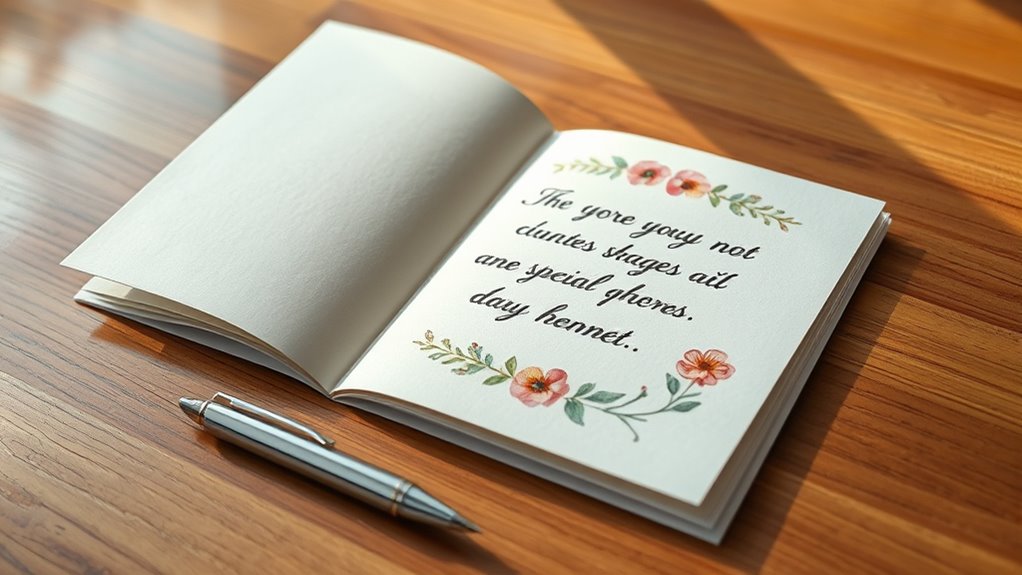 The yore youy not
duntes shages ail
ane speial gheres.
dauy hennet..